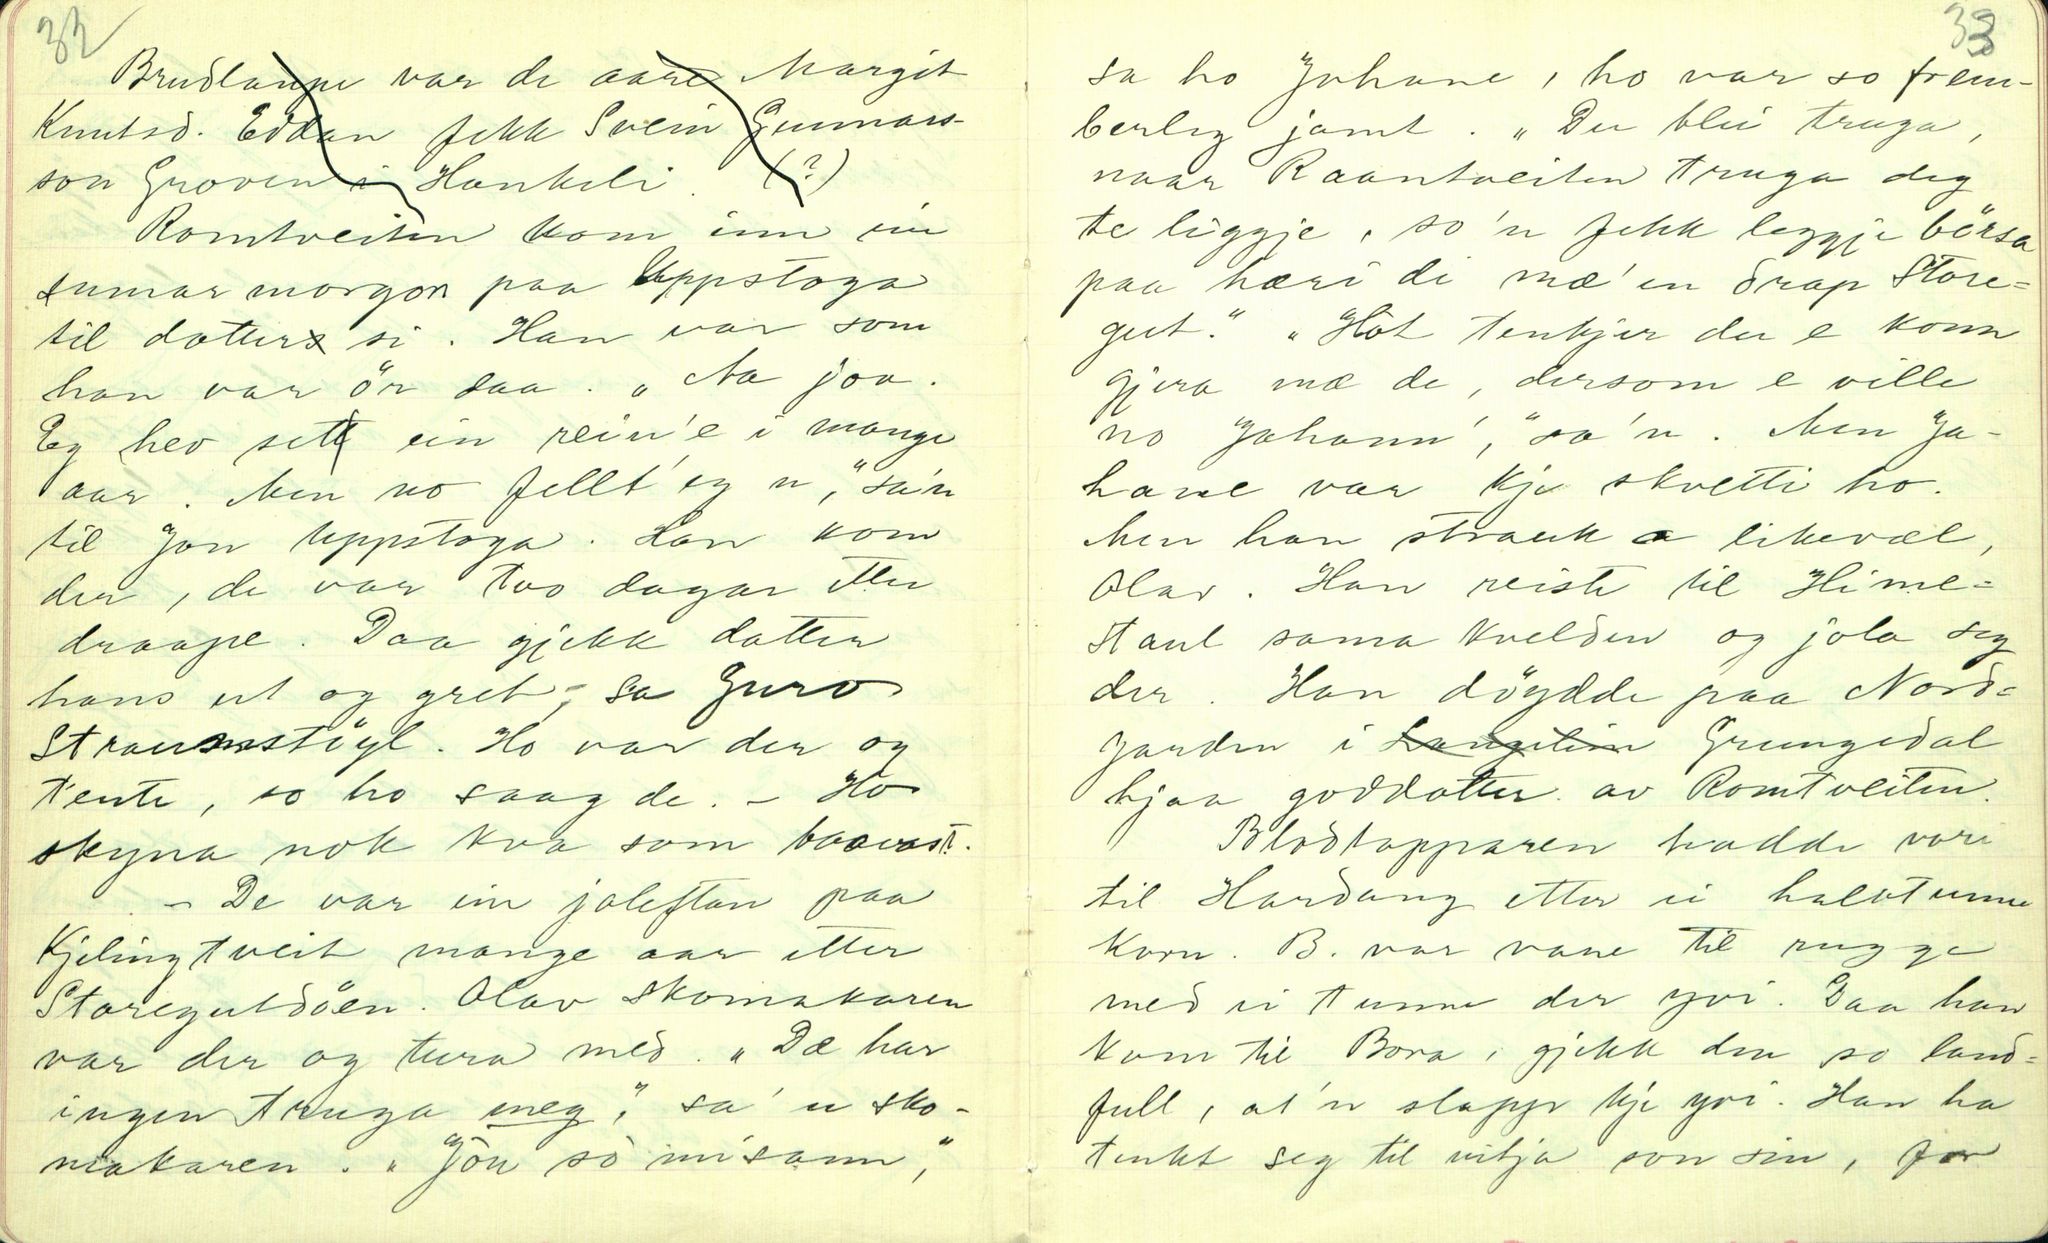 32
Brudlaupe var de aare Margit
Knutsd. Eddan fekk Svein Gunnars-
son Groven i Haukeli. (?)
Romtveiten kom inn ein
sumarmorgon paa Uppstoga
til dotter si. Han var som
han var ör saa. „Na joa.
Eg hev sett ein rein'e i mange
aar. Men no fellt' eg n," sa'n
til Jon Uppstoga. Han kom
der, de var two dagar etter
draape. Daa gjekk dotter
hans ut og gret, sa Guro
Straumstöyl. Ho var der og
tente, so ho saag de. – Ho
skyna nok kva som baavast.
– De var ein joleftan paa
Kjelingtveit mange aar etter
Storegutdöen. Olav Skomakaren
var der og tura med. „Dæ har
ingen truga meg," sa'n sko-
makaren. „Jou so mi sann,"
33
sa ho Johane, ho var so frem-
berleg jamt. „Du blei truga,
naar Raantveiten truga deg
te liggje, so'n fekk leggje börsa
paa hæri di mæ'en drap Store-
gut." „Hot tenkjer du e konn
gjera mæ de, dersom e ville
no Johann'," sa'n. Men Jo-
hane var kje skvetti ho.
Men han strauk a likevæl,
Olav. Han reiste til Hime-
staul sama kvelden og jola seg
der. Han döydde paa Nord-
garden i Grungedal
hjaa goddotter av Romtveiten.
Blodtapparen hadde vore
til Hardang etter ei halvtunne
korn. B. var vane til rugge
med ei tunne der yvi. Daa han
kom til Bora, gjekk den so land-
full, at'n slapp kje yvi. Han ha
tenkt seg til vitja son sin, for